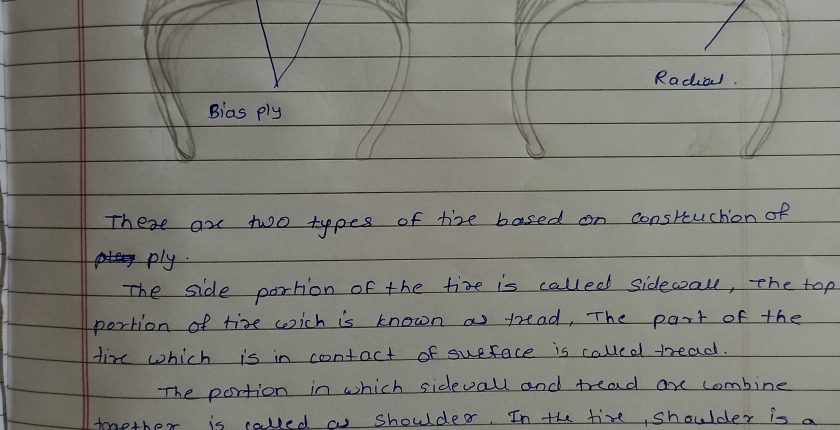 Radial.
Bias ply
There are two types of tire based on construction of
ply.
The side portion of the tire is called sidewall, the top
portion of tire wich is known as tread, The part of the
tire which is in contact of surface is called tread.
The portion in which sidewall and tread are combine
together is called as shoulder. In the tire, shoulder is a